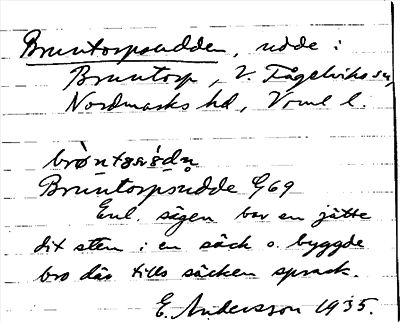 Bruntorpsudden, udde i
Bruntorp, V. Fågelviks sn,
Nordmarks hd, Vrml l.
Bruntorpsudde G69
Enl. sägen bar en jätte
dit sten i en säck o. byggde
bro där tills säcken sprack.
E. Andersson 1935.